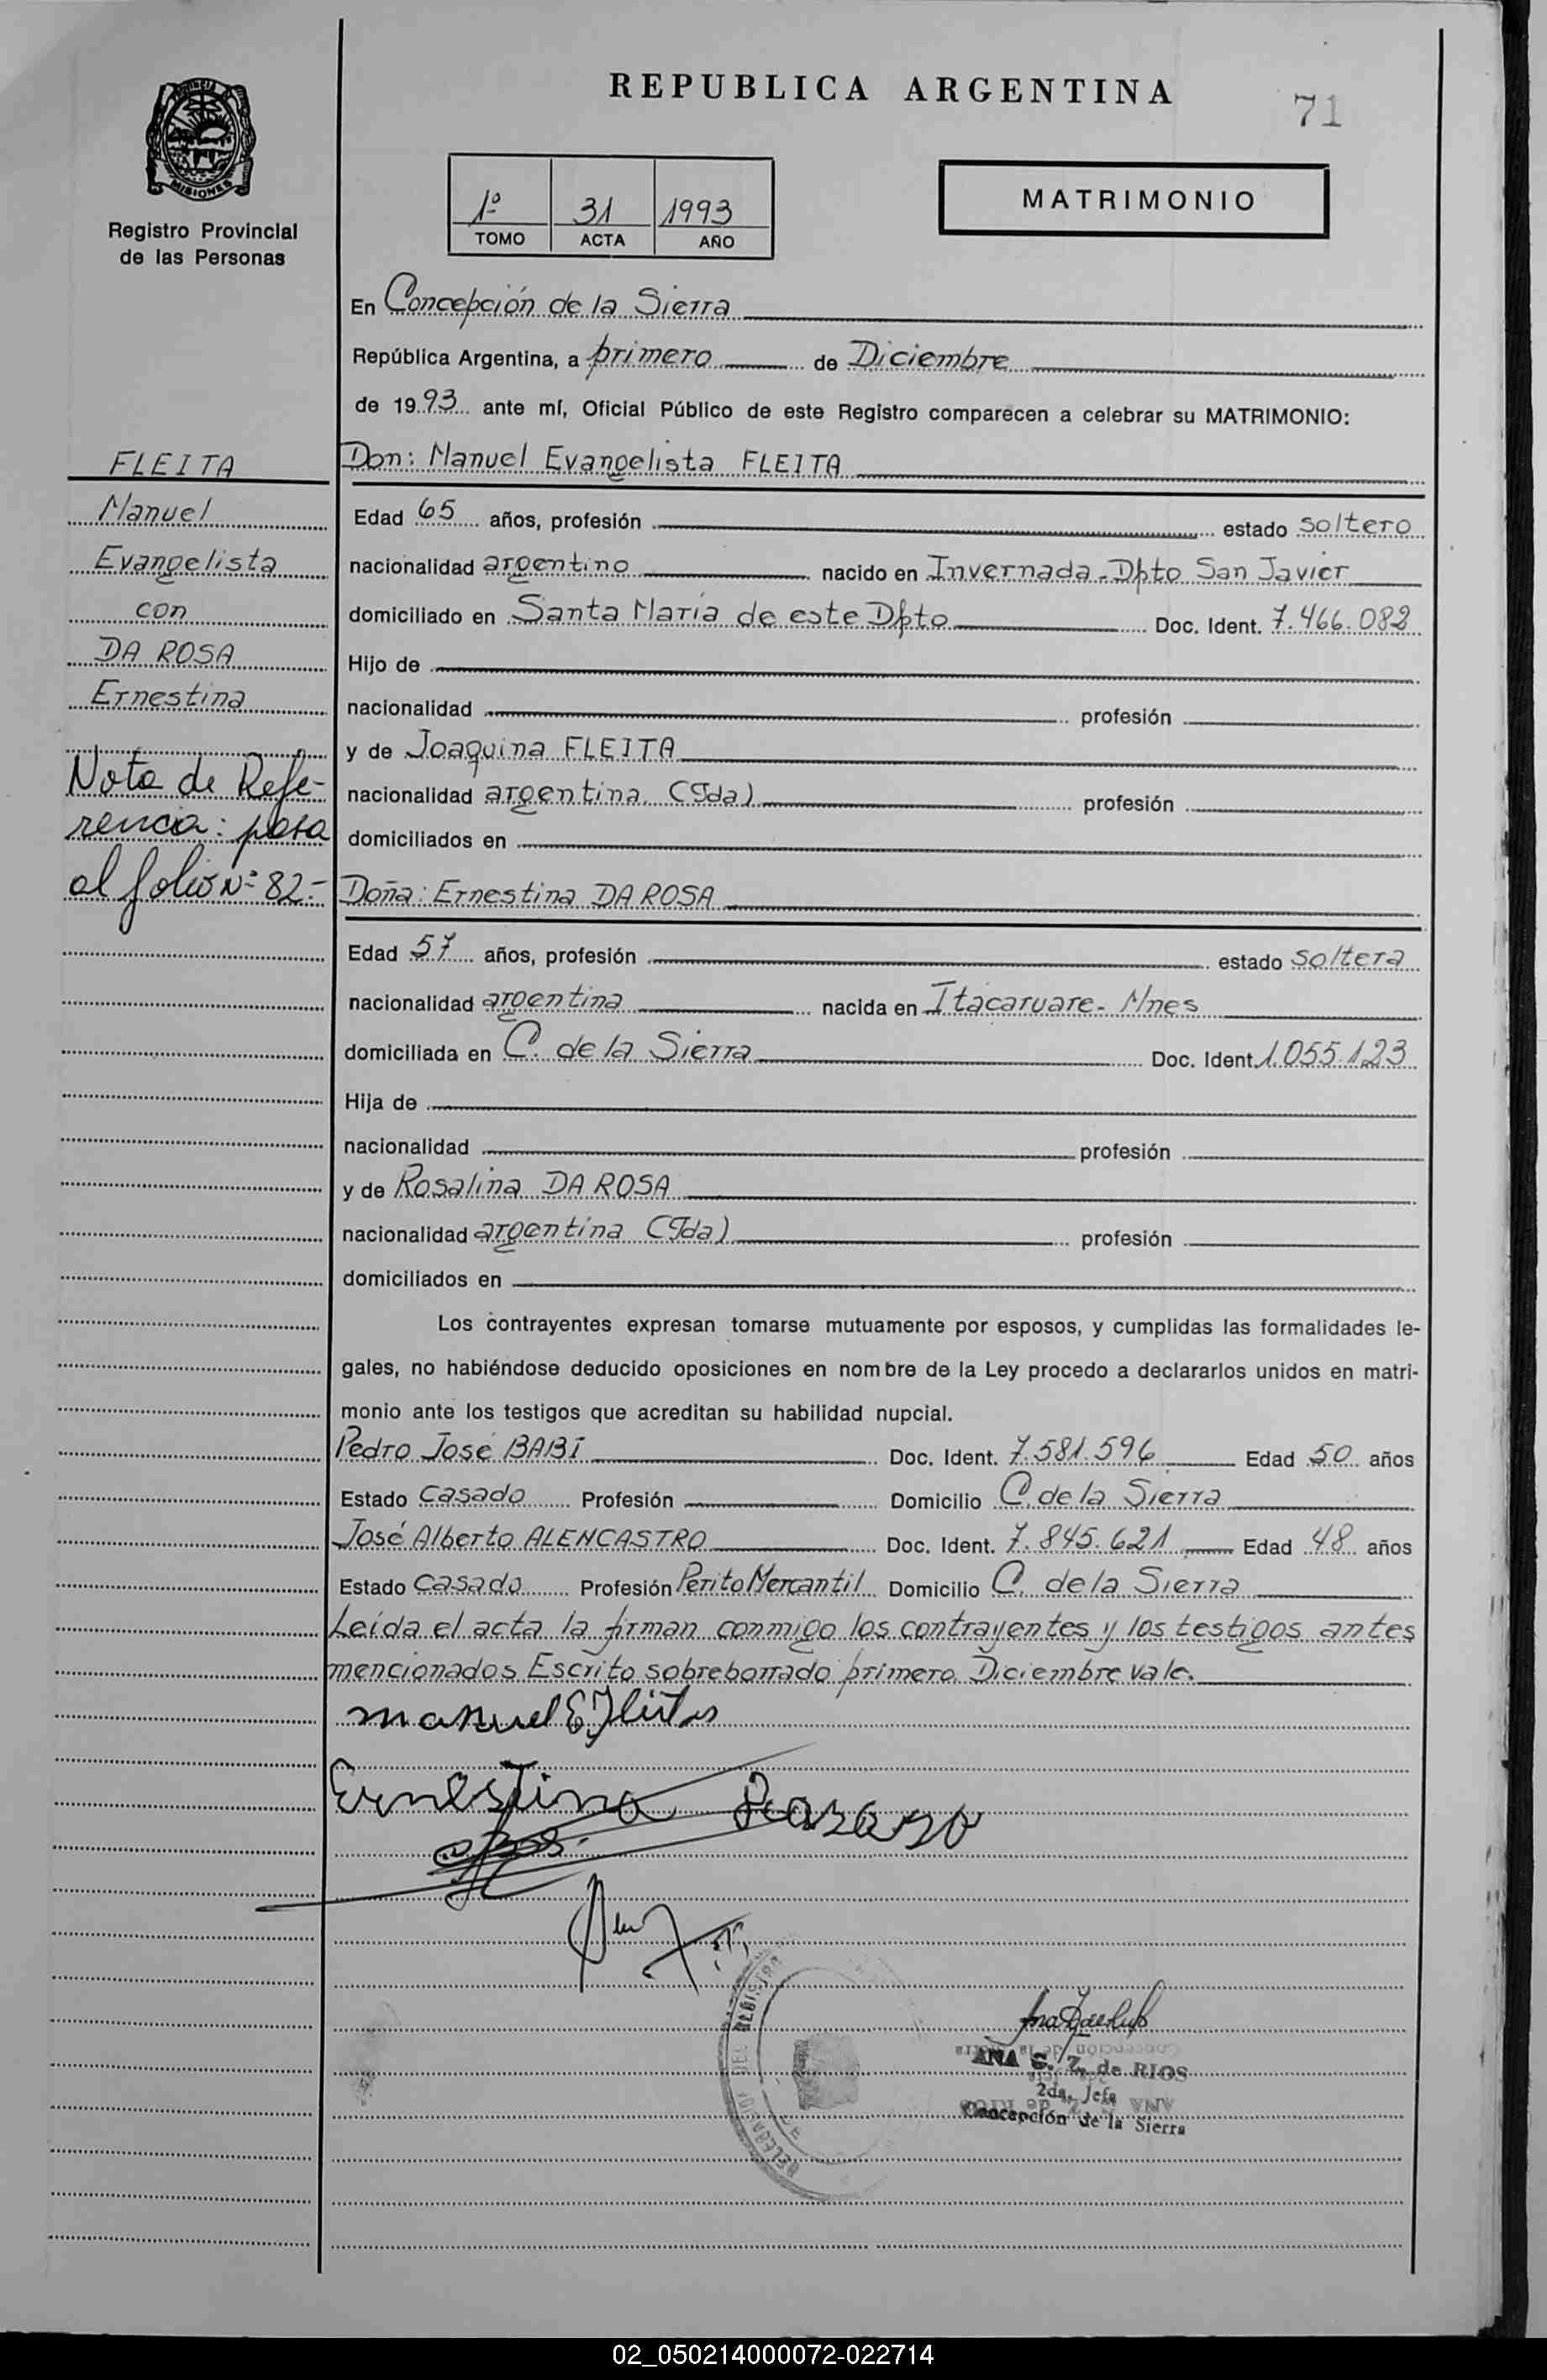 REPUBLICA ARGENTINA
71
MISIONES
Registro Provincial
de las Personas
1º 31 1993
TOMO ACTA AÑO
MATRIMONIO
En Concepción de la Sierra
República Argentina, a primero de Diciembre
de 1993 ante mí, Oficial Público de este Registro comparecen a celebrar su MATRIMONIO:
FLEITA
Manuel
Evangelista
con
DA ROSA
Ernestina
Nota de Refe-
rencia: pasa
al folio Nº 82.-
Don: Manuel Evangelista FLEITA
Edad 65 años, profesión estado soltero
nacionalidad argentino nacido en Invernada-Dpto San Javier
domiciliado en Santa María de este Dpto Doc. Ident. 7.466.082
Hijo de
nacionalidad profesión
y de Joaquina FLEITA
nacionalidad argentina (Fda) profesión
domiciliados en
Doña: Ernestina DA ROSA
Edad 57 años, profesión estado soltera
nacionalidad argentina nacida en Itacaruare- Mnes
domiciliada en C. de la Sierra Doc. Ident. 1.055.123
Hija de
nacionalidad profesión
y de Rosalina DA ROSA
nacionalidad argentina (Fda) profesión
domiciliados en
Los contrayentes expresan tomarse mutuamente por esposos, y cumplidas las formalidades le-
gales, no habiéndose deducido oposiciones en nombre de la Ley procedo a declararlos unidos en matri-
monio ante los testigos que acreditan su habilidad nupcial.
Pedro José BABI Doc. Ident. 7.581.596 Edad 50 años
Estado Casado Profesión Domicilio C. de la Sierra
José Alberto ALENCASTRO Doc. Ident. 7.845.621 Edad 48 años
Estado Casado Profesión Perito Mercantil Domicilio C. de la Sierra
Leída el acta la firman conmigo los contrayentes y los testigos antes
mencionados Escrito sobreborrado primero. Diciembre vale.
manuel E Fleitas
Ernestina
DEL REGISTRO
ANA S. Z. de RIOS
2da. Jefe
Concepción de la Sierra
02_050214000072-022714